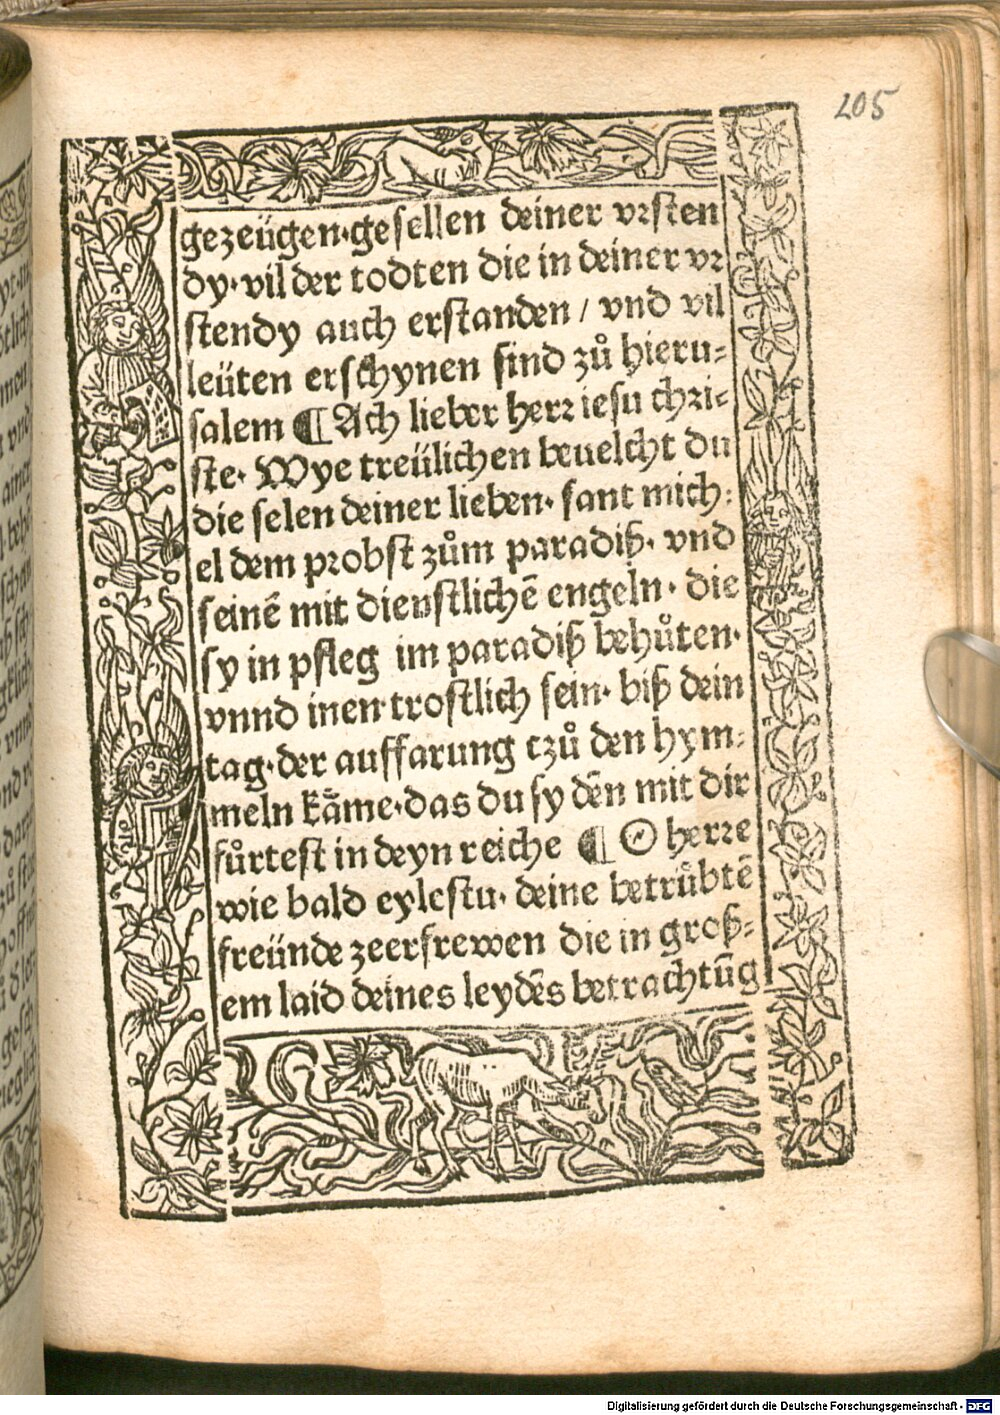 205
gezeügen·gesellen deiner vrsten
dy·vil der todten die in deiner vr
stendy auch erstanden / vnd vil
leüten erschynen sind zů hieru-
salem ¶ Ach lieber herr iesu chri-
ste· Wye treülichen beuelcht du
die selen deiner lieben· sant mich-
el dem probst zům paradiß· vnd
seinē mit dienstlichē engeln· die
sy in pfleg im paradiß behůten·
vnnd inen·trostlich sein· biß dein
tag·der auffarung tzů den hym-
meln kåme·das du sy dēn mit dir
fůrtest in deyn reiche ¶ O herre
wie bald eylestu· deine betrůbtē
freünde zeerfrewen die in groß-
em laid deines leydēs betrachtūg
Digitalisierung gefördert durch die Deutsche Forschungsgemeinschaft - DFG